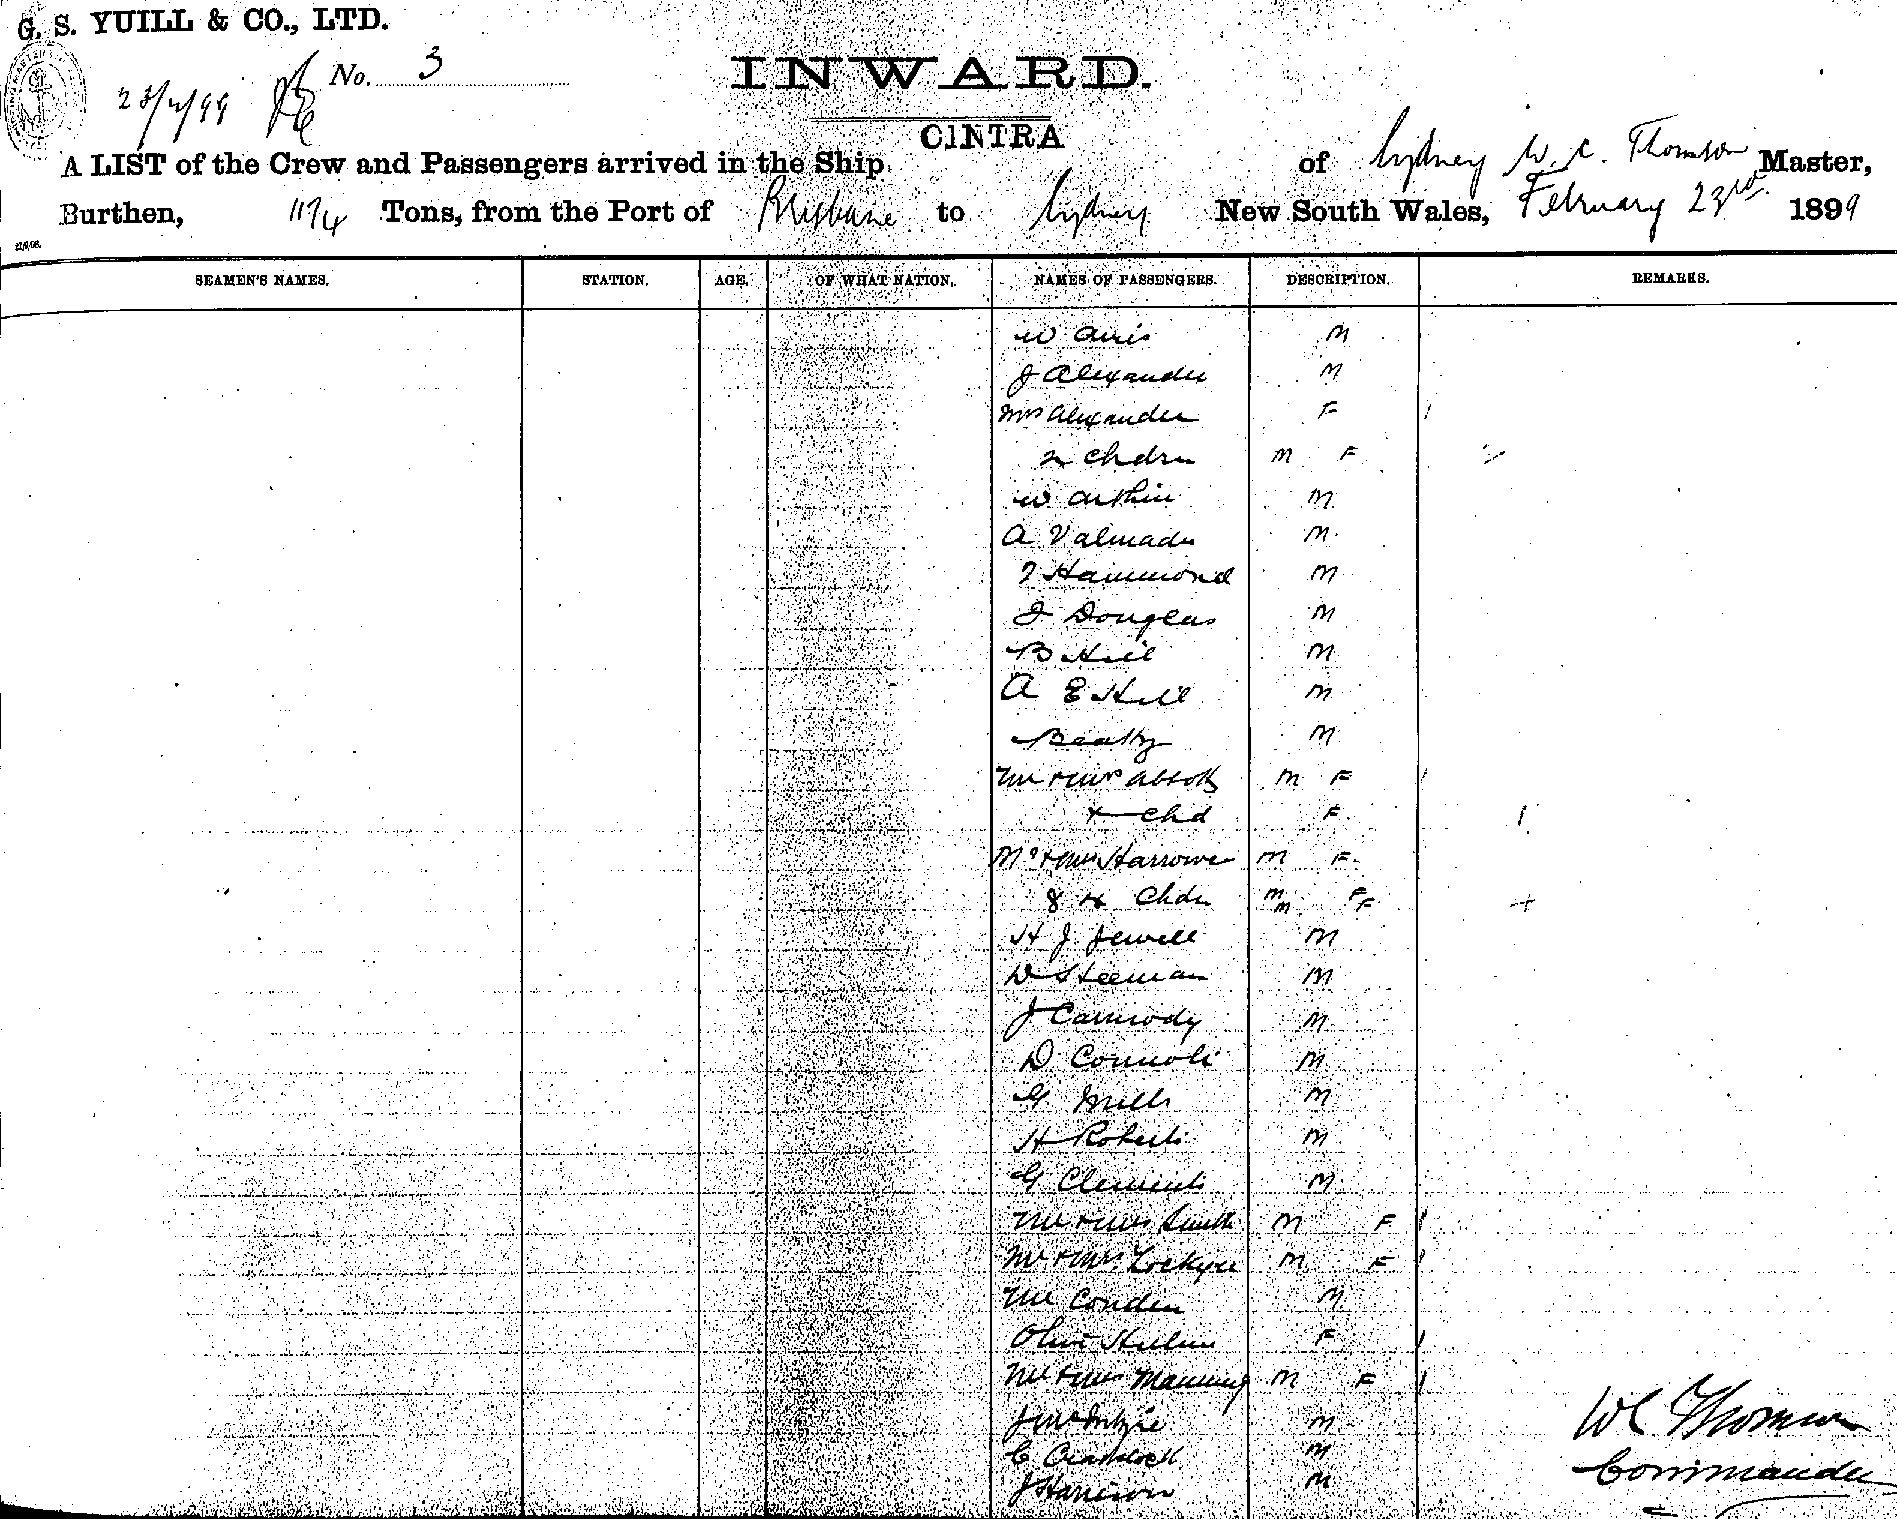 G. S. YUILL & CO., LTD.
No. 3
INWARD.
23/2/99
CINTRA
A LIST of the Crew and Passengers arrived in the Ship of Sydney W. C. Thomson Master,
Burthen, 1174 Tons, from the Port of Brisbane to Sydney New South Wales, February 23rd 1899
SEAMEN'S NAMES. STATION. AGE. OF WHAT NATION. NAMES OF PASSENGERS. DESCRIPTION. REMARKS.
W M
J Alexander M
Mrs Alexander F
2 Chdrn M F
W M
A M
Hammond M
J Douglas M
B Hill M
A E Hill M
Beatty M
Mr & Mrs Abbott M F
& Chd F
Mr & Mrs M F
4 Chdn M M F F
H J Jewell M
D Steeman M
J Carmody M
D Connoli M
G Mills M
H Roberts M
G Clements M
Mr & Mrs Smith M F
Mr & Mrs Lockyer M F
Mr Conden M
Olive F
Mr & Mrs Manning M F
J McIntyre M
C Craddock M
J Harrison M
W C Thomson
Commander